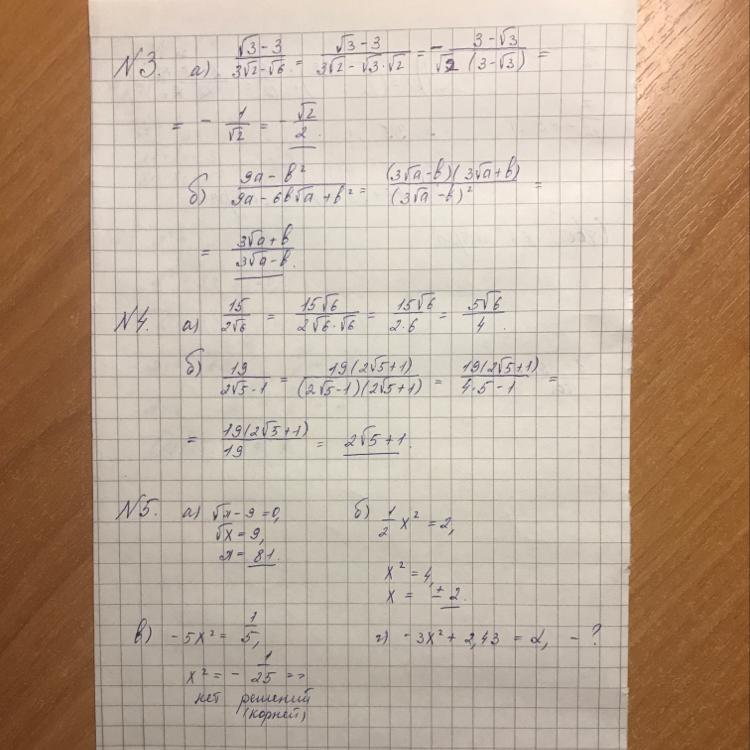 №3. а) (√3 - 3)/(3√2 - √6) = (√3 - 3)/(3√2 - √3·√2) = - (3 - √3)/(√2 (3 - √3)) =
= - 1/√2 = - √2/2.
б) (9a - b²)/(9a - 6b√a + b²) = ((3√a - b)(3√a + b))/(3√a - b)² =
= (3√a + b)/(3√a - b).
№4. а) 15/(2√6) = 15√6/(2√6·√6) = 15√6/(2·6) = 5√6/4.
б) 19/(2√5 - 1) = 19(2√5+1)/((2√5-1)(2√5+1)) = 19(2√5+1)/(4·5 - 1) =
= 19(2√5+1)/19 = 2√5+1.
№5. а) √x - 9 = 0,
√x = 9,
x = 81.
б) 1/2 x² = 2,
x² = 4,
x = ± 2.
в) -5x² = 1/5,
x² = - 1/25 =>
нет решений
(корней)
г) -3x² + 2,43 = 2, - ?